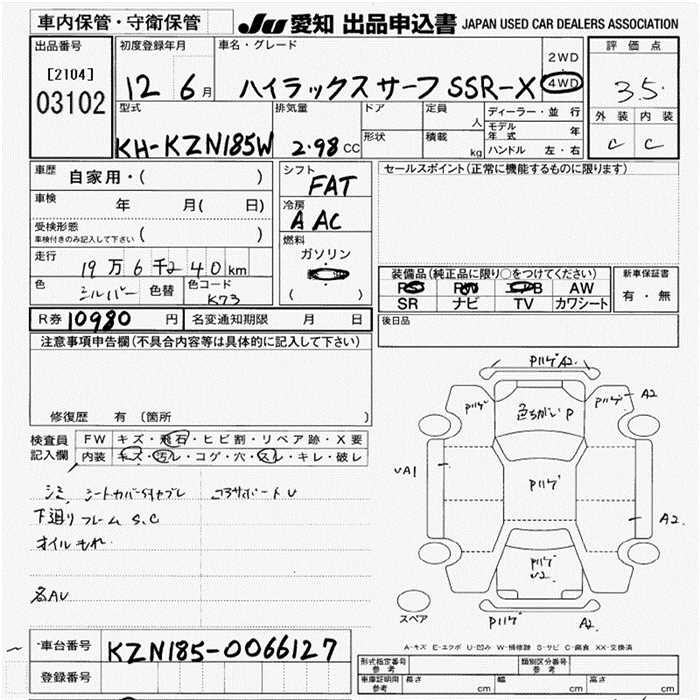 車内保管・守衛保管
JU 愛知 出品申込書 JAPAN USED CAR DEALERS ASSOCIATION
出品番号
[2104]
03102
初度登録年月
12 6 月
車名・グレード
ハイラックスサーフ SSR-X
2WD
4WD
評価点
3.5
外装 内装
C C
型式
KH-KZN185W
排気量
2.98 CC
ドア
形状
定員
人
積載
kg
ディーラー・並行
モデル年式 年
ハンドル 左・右
車歴 自家用・( )
車検 年 月( 日)
受検形態
車検付きのみ記入して下さい ( )
走行
19万6千240km
色 シルバー 色替 色コード K73
シフト
FAT
冷房
AAC
燃料
ガソリン
( )
セールスポイント(正常に機能するものに限ります)
装備品(純正品に限り○をつけてください)
PS PW エアB AW
SR ナビ TV カワシート
新車保証書
有・無
R券 10980 円 名変通知期限 月 日
後日品
注意事項申告欄(不具合内容等は具体的に記入して下さい)
修復歴 有(箇所 )
検査員記入欄
FW キズ・飛石・ヒビ割・リペア跡・X要
内装 キズ・汚レ・コゲ・穴・スレ・キレ・破レ
シミ シートカバー付ヤブレ コアサポートU
下廻りフレームS.C
オイルもれ
各AU
Pハゲ A2
Pハゲ 色ちがいP Pハゲ A2
UA1 Pハゲ
A2
Pハゲ
U2
スペア Pハゲ A2
A-キズ E-エクボ U-凹み W-補修跡 S-サビ C-腐食 XX-交換済
車台番号 KZN185-0066127
登録番号
形式指定番号 参考
類別区分番号 参考
車庫証明用 参考 長さ cm 幅 cm 高さ cm